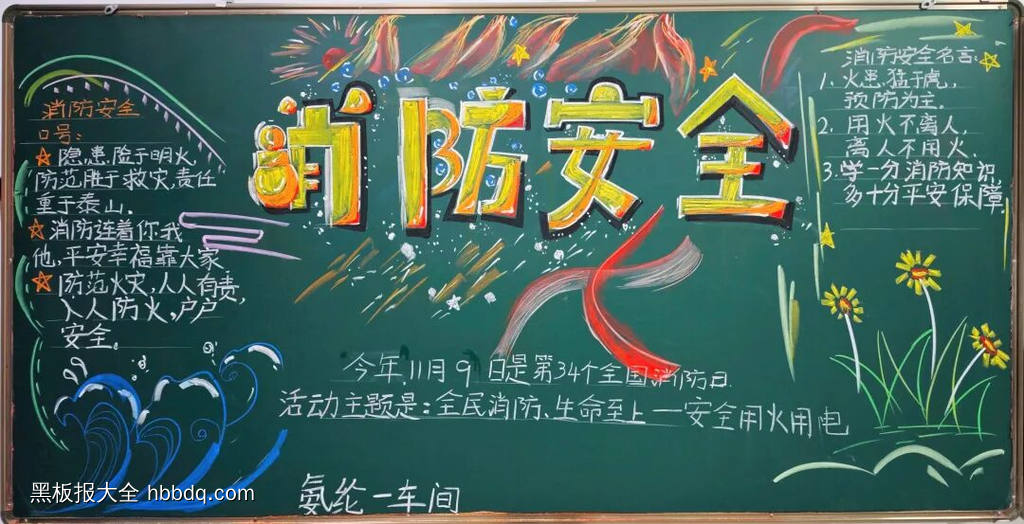 消防安全
消防安全
口号:
隐患险于明火,
防范胜于救灾,责任
重于泰山.
消防连着你我
他,平安幸福靠大家
防范火灾,人人有责,
人人防火,户户
安全。
消防安全名言:
1. 火患猛于虎,
预防为主.
2. 用火不离人,
离人不用火.
3. 学一分消防知识,
多十分平安保障
今年,11月9日是第34个全国消防日.
活动主题是:全民消防、生命至上一安全用火用电
氨纶一车间
黑板报大全 hbbdq.com